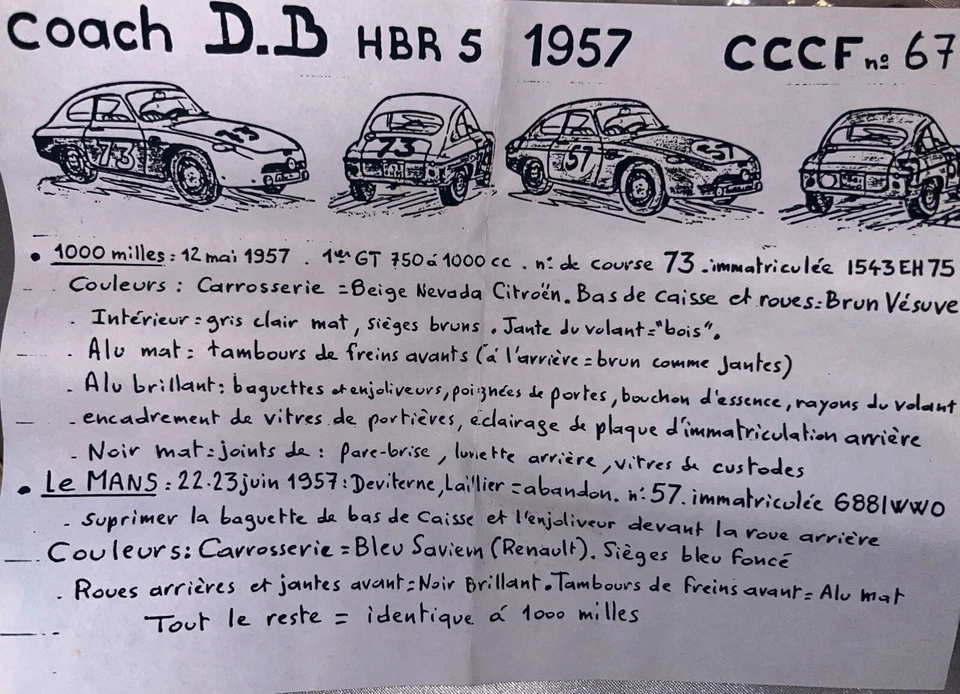 Coach D.B HBR 5 1957 CCCF nº 67
73 73 57 57
• 1000 milles : 12 mai 1957 . 1er GT 750 à 1000 cc . nº de course 73 . immatriculée 1543 EH 75
Couleurs : Carrosserie = Beige Nevada Citroën. Bas de caisse et roues = Brun Vésuve
. Intérieur = gris clair mat, sièges bruns . Jante du volant = "bois".
. Alu mat = tambours de freins avants (à l'arrière = brun comme jantes)
. Alu brillant : baguettes et enjoliveurs, poignées de portes, bouchon d'essence, rayons du volant
. encadrement de vitres de portières, éclairage de plaque d'immatriculation arrière
. Noir mat = joints de : pare-brise, lunette arrière, vitres de custodes
• Le MANS : 22-23 juin 1957 : Deviterne, Laillier = abandon. nº 57. immatriculée 6881WWO
. suprimer la baguette de bas de caisse et l'enjoliveur devant la roue arrière
Couleurs : Carrosserie = Bleu Saviem (Renault). Sièges bleu foncé
. Roues arrières et jantes avant = Noir Brillant. Tambours de freins avant = Alu mat
Tout le reste = identique à 1000 milles